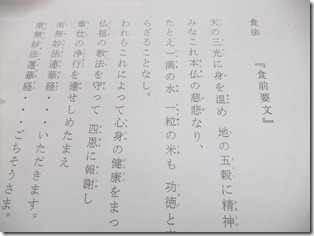 食法
『食前要文』
天の三光に身を温め 地の五穀に精神
みなこれ本仏の慈悲なり、
たとえ一滴の水 一粒の米も 功徳と
らざることなし。
われらこれによって心身の健康をまっ
仏祖の教法を守って 四恩に報謝し
奉仕の浄行を達せしめたまえ
南無妙法蓮華経・・・いただきます。
南無妙法蓮華経・・・ごちそうさま。